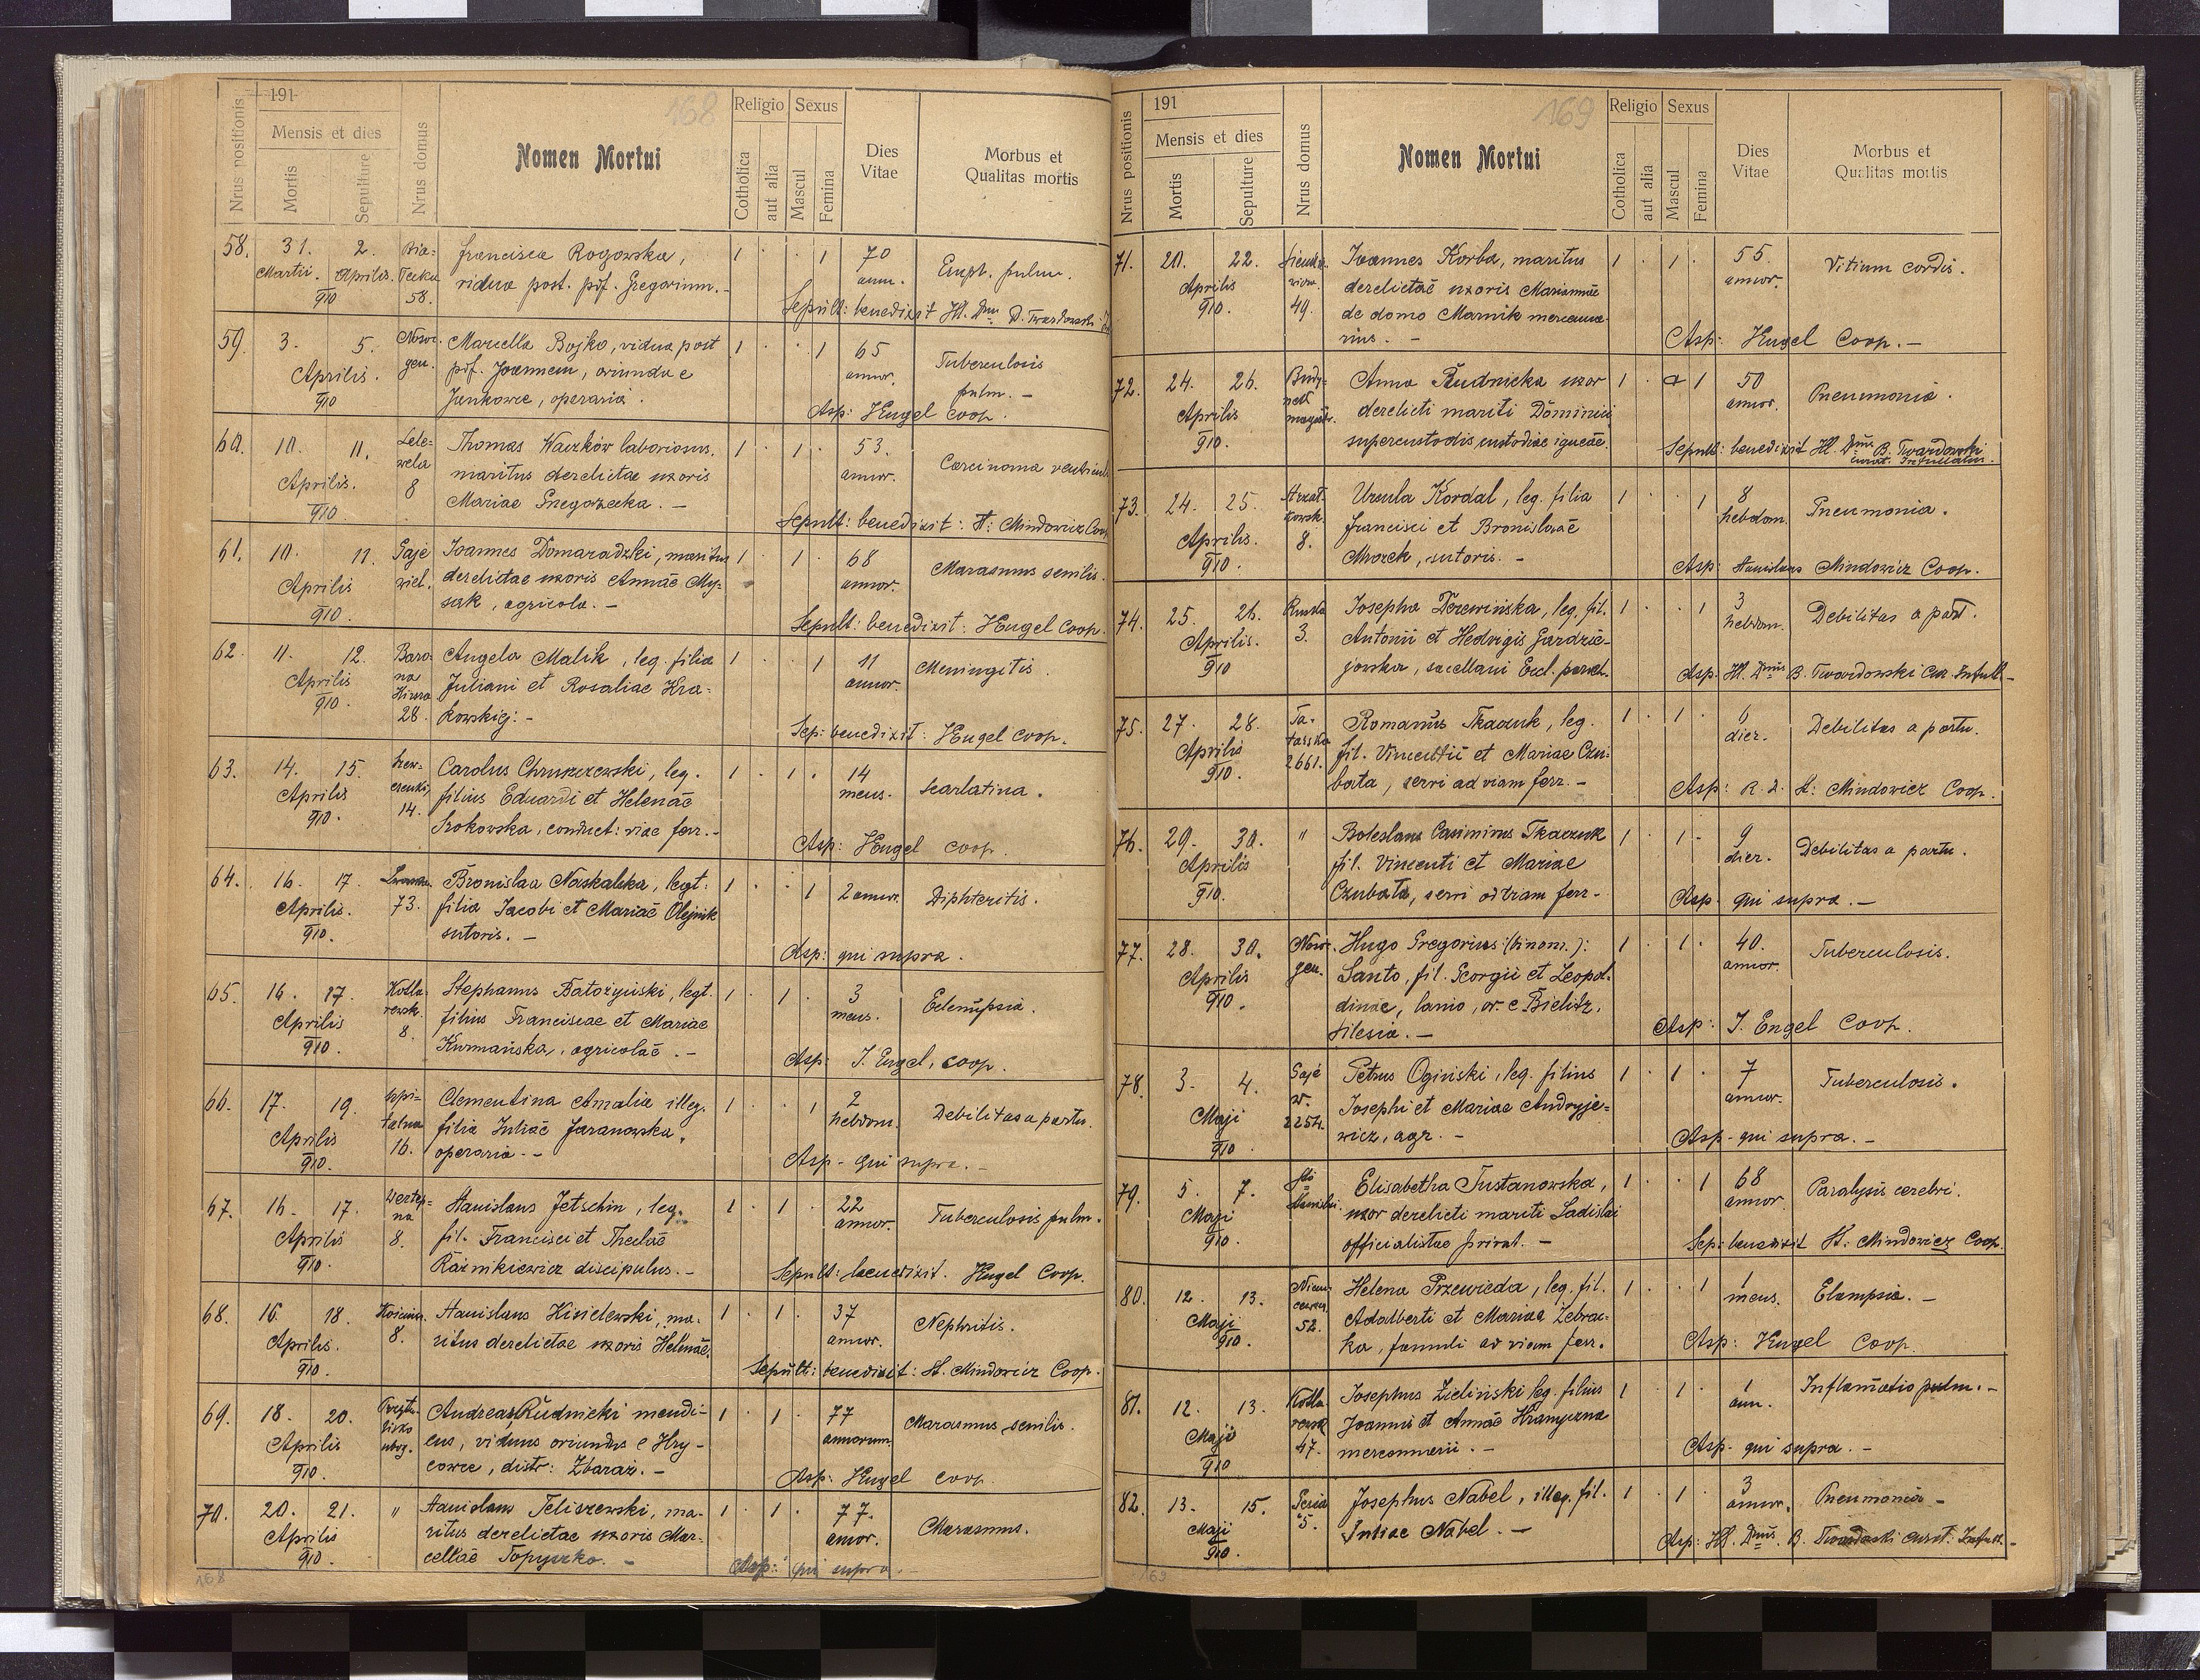 191
168
Nrus positionis
Mensis et dies
Mortis
Sepulture
Nrus domus
Nomen Mortui
Religio
Catholica
aut alia
Sexus
Mascul
Femina
Dies Vitae
Morbus et
Qualitas mortis
58. 31. 2. Francisca Rogowska, 1 · · 1 70 Emph. pulm.
Martii. Aprilis. vidua post. pdf. Gregorium. - ann.
910 58.
Sepult: benedixit Hl. Dnus
59. 3. 5. Marcella Bojko, vidua post 1 · · 1 65 Tuberculosis
Aprilis. gen. pdf. Joannem, oriunda e annor. pulm. -
910 Jankowce, operaria.
Asp: JEngel coop.
60. 10. 11. Lele= Thomas Waczków laboriosus, 1 · 1 · 53. Carcinoma ventriculi
Aprilis. wela maritus derelictae uxoris annor.
910 8 Mariae Gregorzecka. -
Sepult: benedixit: St: Mindowicz Coop
61. 10. 11. Gaje Joannes Domaradzki, maritus 1 · 1 · 68 Marasmus senilis.
Aprilis wiel. derelictae uxoris Annae My= annor.
910. sak, agricola. -
Sepult: benedixit: JEngel Coop.
62. 11. 12. Baro= Angela Malik, leg. filia 1 · · 1 11 Meningitis.
Aprilis na Juliani et Rosaliae Kra= annor.
910. Hirsza 28. kowskiej: -
Sep: benedixit: JEngel coop.
63. 14. 15. Szew= Carolus Chruszczewski, leg. 1 · 1 · 14 Scarlatina.
Aprilis czenki, filius Eduardi et Helenae mens.
910. 14. Srokowska, conduct: viae ferr. -
Asp: JEngel coop.
64. 16. 17. Bronislaa Naskalska, legt: 1 · · 1 2 annor. Diphteritis.
Aprilis. 73. filia Jacobi et Mariae Olejnik
910. sutoris. -
Asp: qui supra.
65. 16. 17. Kotla= Stephanus Batożyński, legt. 1 · 1 · 3 Eclempsia.
Aprilis rewsk. filius Franciscae et Mariae mens.
910. 8. Kurmańska, agricolae. -
Asp: J. Engel, coop.
66. 17. 19. szpi= Clementina Amalia illeg. 1 · · 1 2 Debilitas a partu.
Aprilis talna filia Juliae Jaranowska, hebdom.
910. 16. operaria. -
Asp - qui supra. -
67. 16. 17. Wertep= Stanislaus Jetschin, leg. 1 · 1 · 22 Tuberculosis pulm.
Aprilis na fil. Francisci et Theclae annor.
910. 8. Raźnikiewicz discipulus. -
Sepult: benedixit. JEngel Coop.
68. 16. 18. Stanislaus Kisielewski, ma= 1 · 1 · 37 Nephritis.
Aprilis. 8. ritus derelictae uxoris Helenae. annor.
910.
Sepult: benedixit: St. Mindowicz Coop.
69. 18. 20. Andreas Rudnicki mendi= 1 · 1 · 77 Marasmus senilis.
Aprilis cus, viduus oriundus e Hry= annorum
910. cowce, distr: Zbaraż. -
Asp: JEngel coop
70. 20. 21. " Stanislaus Teliszewski, ma= 1 · 1 · 77. Marasmus.
Aprilis ritus derelictae uxoris Mar= annor.
910. cellae Topyszko. -
Asp: qui supra. -
168
191
169
Nrus positionis
Mensis et dies
Mortis
Sepulture
Nrus domus
Nomen Mortui
Religio
Catholica
aut alia
Sexus
Mascul
Femina
Dies Vitae
Morbus et
Qualitas mortis
71. 20. 22. Joannes Korba, maritus 1 · 1 · 55. Vitium cordis.
Aprilis derelictae uxoris Mariannae annor.
910. 49. de domo Marnik mercena=
rius. -
Asp: JEngel Coop. -
72. 24. 26. Anna Rudnicka uxor 1 · 1 50 Pneumonia.
Aprilis derelicti mariti Dominici annor.
910. supercustodis custodiae igneae.
Sepult: benedixit Hl. Dnus B. Twardowski
73. 24. 25. Ursula Kordal, leg. filia 1 · · 1 8 Pneumonia.
Aprilis. Francisci et Bronislavae hebdom.
910. 8. Mrozek, sutoris. -
Asp: Stanislaus Mindowicz Coop.
74. 25. 26. Ruska Josepha Derewińska, leg. fil. 1 · · 1 3 Debilitas a part.
Aprilis. 3. Antonii et Hedvigis Gardzie= hebdom.
910 jowska, sacellani Eccl. paroch.
Asp: Hl. Dnus B. Twardowski Cur. Infull. -
75. 27. 28. Ta= Romanus Tkaczuk, leg. 1 · 1 · 6 Debilitas a partu.
Aprilis tarska fil. Vincentii et Mariae Czu= dier.
910. 2661. bata, servi ad viam ferr. -
Asp: R. D. St: Mindowicz Coop.
76. 29. 30. " Boleslaus Casimirus Tkaczuk 1 · 1 - 9 Debilitas a partu.
Aprilis fil. Vincenti et Mariae dier.
910. Czubata, servi ad viam ferr. -
Asp. qui supra. -
77. 28. 30. Nowe. Hugo Gregorius (binom.): 1 · 1 · 40. Tuberculosis.
Aprilis gen. Santo, fil. Georgii et Leopol= annor.
910. dinae, lanio, or. e Bielitz,
Silesia. -
Asp: J. Engel Coop.
78. 3. 4. Gaje Petrus Ogiński, leg. filius 1 · 1 · 7 Tuberculosis.
Maji w. Josephi et Mariae Andryje= annor.
910. 2254. wicz, agr. -
Asp - qui supra. -
79. 5. 7. Sti Elisabetha Tustanowska, 1 · · 1 68 Paralysis cerebri.
Maji Stanislai. uxor derelicti mariti Ladislai annor.
910. officialistae privat. -
Sep: benedixit St: Mindowicz Coop.
80. 12. 13. Helena Przewieda, leg. fil. 1 · · 1 1 Elampsia. -
Maji Adalberti et Mariae Żebrac= mens.
910. 52. ka, famuli ad viam ferr.
Asp: JEngel Coop.
81. 12. 13. Kotla= Josephus Zieliński leg. filius 1 · 1 · 1 Inflamatio pulm. -
Maji rewsk. Joannis et Annae Hramyczna ann.
910 47. mercennarii. -
Asp - qui supra. -
82. 13. 15. Josephus Nabel, illeg. fil. 1 · 1 · 3 Pneumonia -
Maji 5. Juliae Nabel. - annor.
910.
Asp: Hl. Dnus. B. Twardowski curat: Infull. -
169